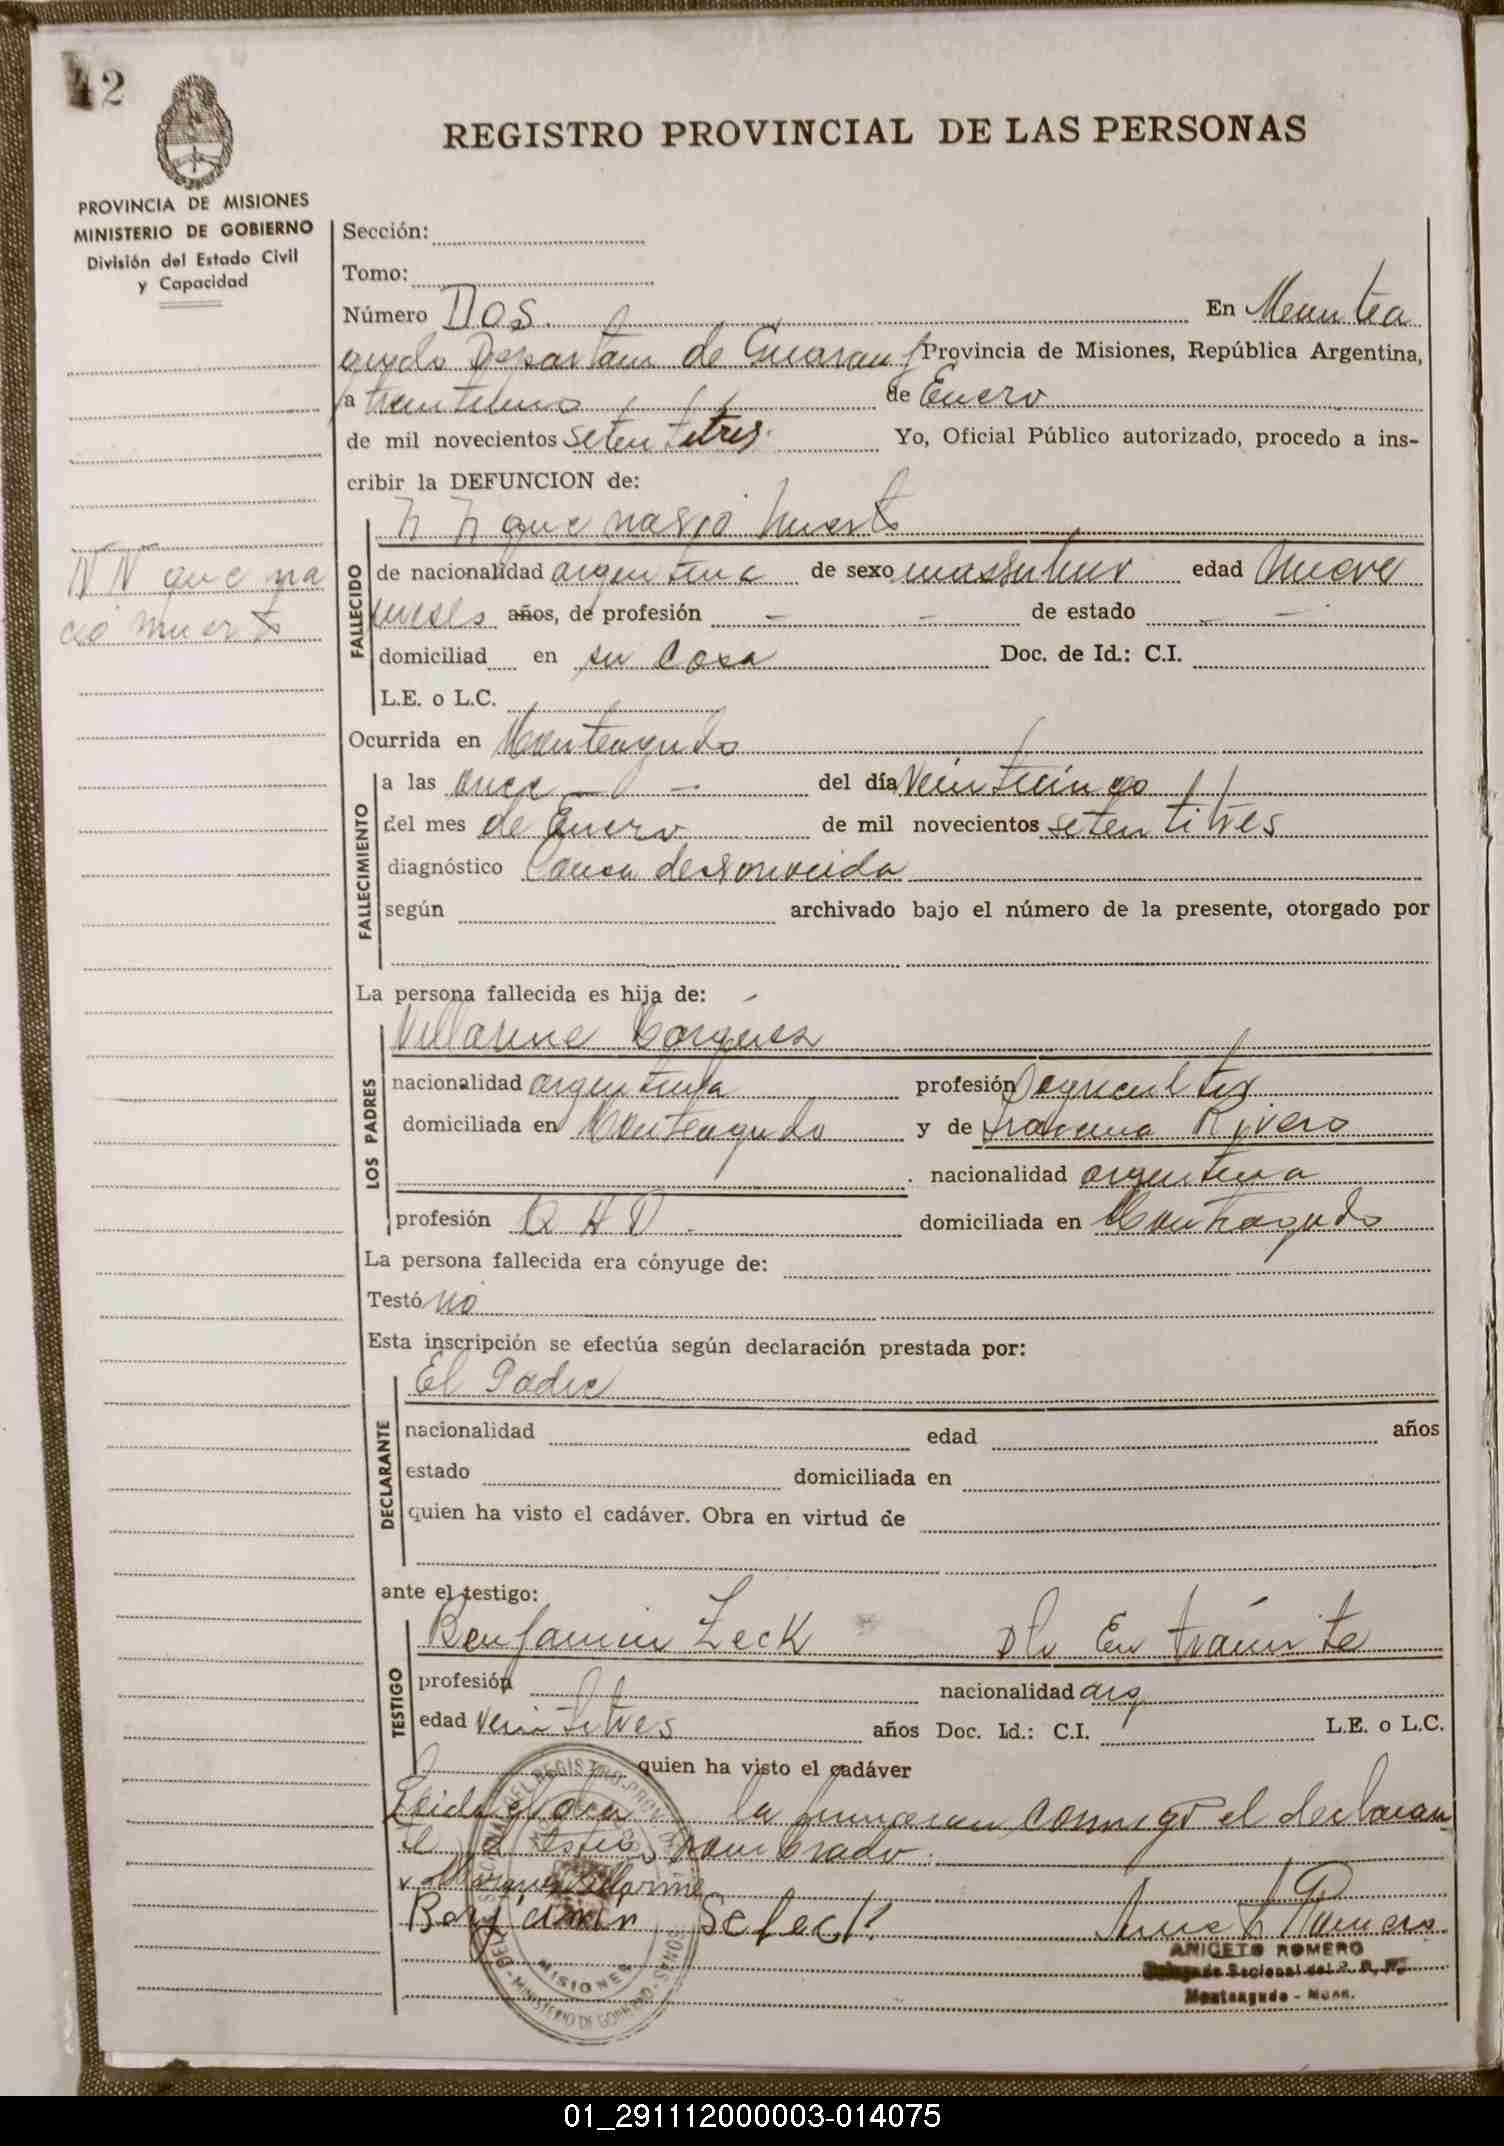 42
REGISTRO PROVINCIAL DE LAS PERSONAS
PROVINCIA DE MISIONES
MINISTERIO DE GOBIERNO
División del Estado Civil
y Capacidad
Sección:
Tomo:
Número Dos. En Montea
gudo Departam de Guarani Provincia de Misiones, República Argentina,
a treintiuno de Enero
de mil novecientos setentitres. Yo, Oficial Público autorizado, procedo a ins-
cribir la DEFUNCION de:
N N que nasio muerto
NN que na
cio muerto
FALLECIDO
de nacionalidad argentina de sexo edad nueve
meses años, de profesión - - de estado - -
domiciliad en su casa Doc. de Id.: C.I.
L.E. o L.C.
Ocurrida en Monteagudo
FALLECIMIENTO
a las once - - del día veinticinco
del mes de Enero de mil novecientos setentitres
diagnóstico Causa desconocida
según archivado bajo el número de la presente, otorgado por
La persona fallecida es hija de:
LOS PADRES
nacionalidad argentina profesión agricultor
domiciliada en Monteagudo y de Rivero
nacionalidad argentina
profesión Q H D. domiciliada en Monteagudo
La persona fallecida era cónyuge de:
Testó no
Esta inscripción se efectúa según declaración prestada por:
El Padre
DECLARANTE
nacionalidad edad años
estado domiciliada en
quien ha visto el cadáver. Obra en virtud de
ante el testigo:
Benjamin Zeck En trámite
TESTIGO
profesión nacionalidad arg
edad veintitres años Doc. Id.: C.I. L.E. o L.C.
quien ha visto el cadáver
Leida el acta la firmaron conmigo el declaran
te testigo nombrado.
MISIONES
ANICETO ROMERO
Delegado Seccional del R. P. P.
Monteagudo - Mnes.
01_291112000003-014075